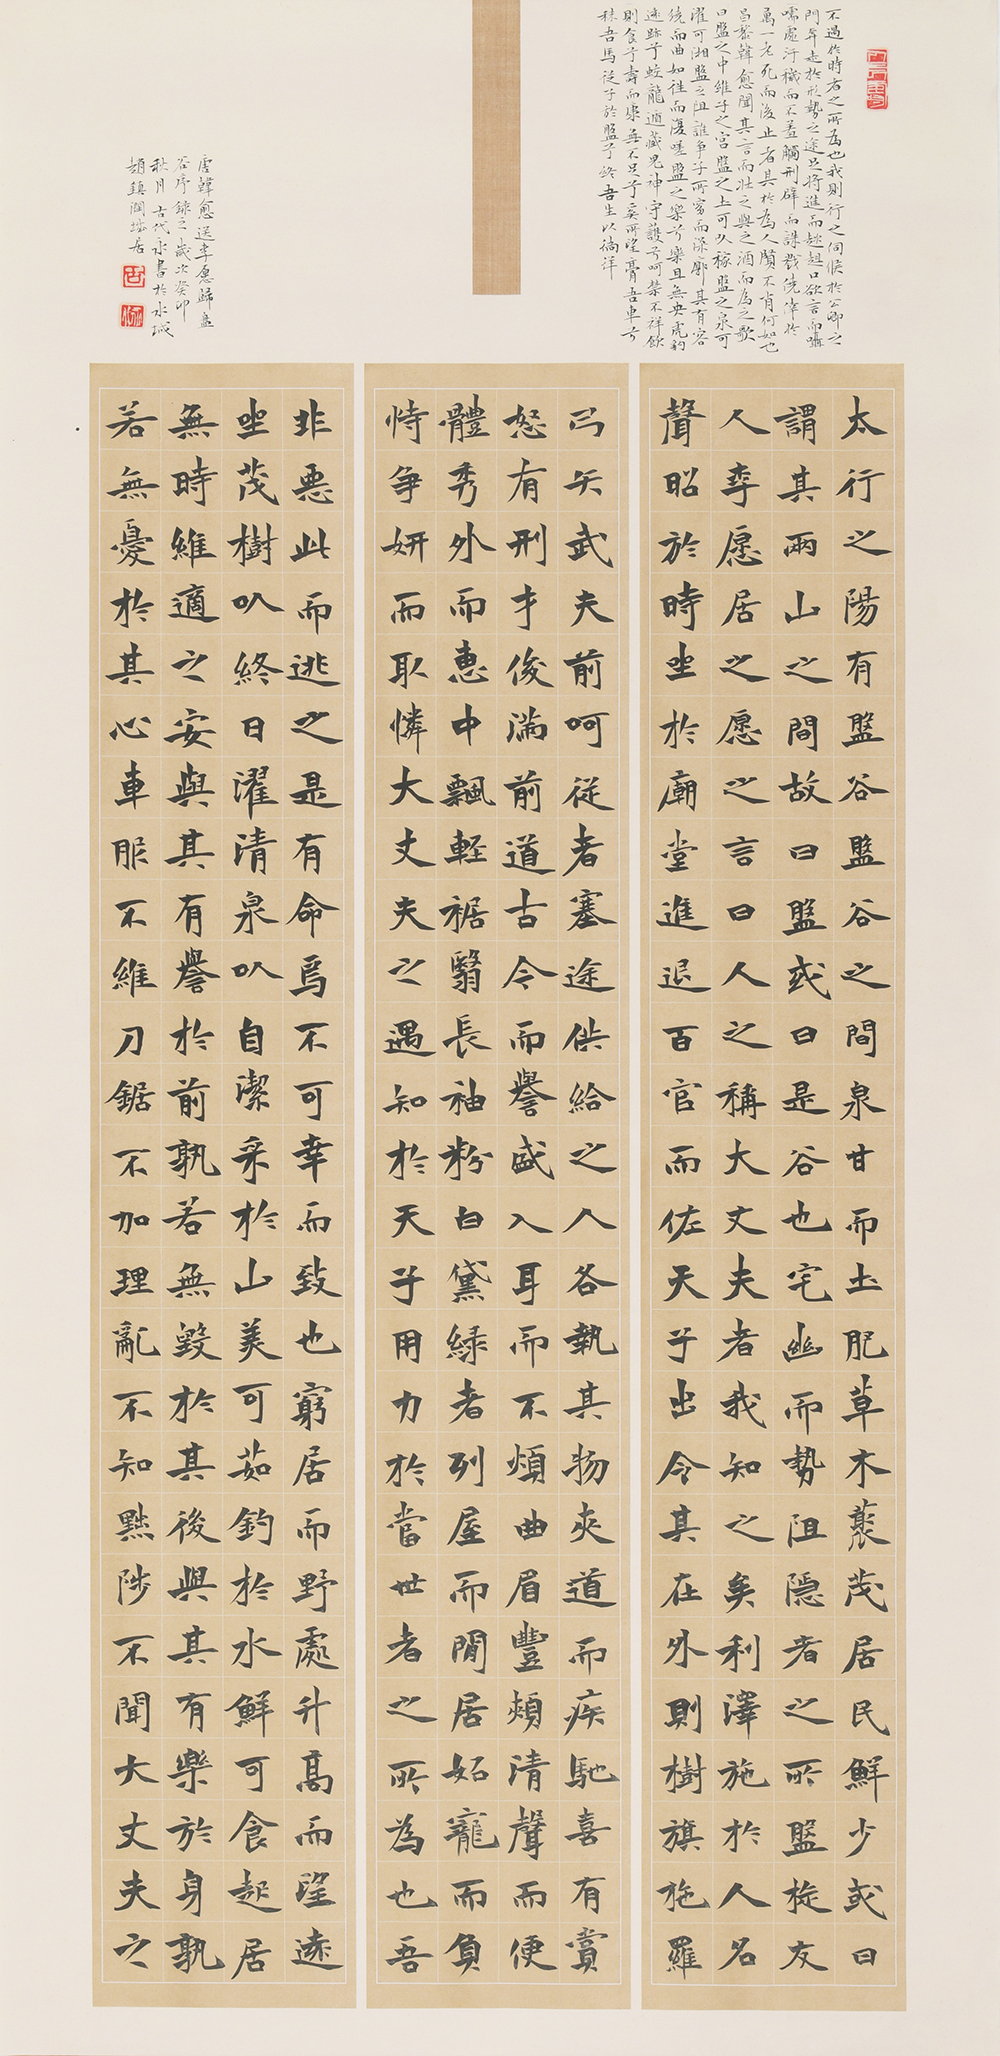 太行之陽有盤谷盤谷之間泉甘而土肥草木叢茂居民鮮少或曰
謂其兩山之間故曰盤或曰是谷也宅幽而勢阻隱者之所盤旋友
人李愿居之愿之言曰人之稱大丈夫者我知之矣利澤施於人名
聲昭於時坐於廟堂進退百官而佐天子出令其在外則樹旗旄羅
弓矢武夫前呵從者塞途供給之人各執其物夾道而疾馳喜有賞
怒有刑才俊滿前道古今而譽盛入耳而不煩曲眉豐頰清聲而便
體秀外而惠中飄輕裾翳長袖粉白黛綠者列屋而閒居妬寵而負
恃爭妍而取憐大丈夫之遇知於天子用力於當世者之所為也吾
非惡此而逃之是有命焉不可幸而致也窮居而野處升高而望遠
坐茂樹以終日濯清泉以自潔采於山美可茹釣於水鮮可食起居
無時維適之安與其有譽於前孰若無毀於其後與其有樂於身孰
若無憂於其心車服不維刀鋸不加理亂不知黜陟不聞大丈夫之
不遇於時者之所為也我則行之伺候於公卿之
門奔走於形勢之途足將進而趑趄口欲言而囁
嚅處汙穢而不羞觸刑辟而誅戮僥倖於
萬一老死而後止者其於為人賢不肖何如也
昌黎韓愈聞其言而壯之與之酒而為之歌
曰盤之中維子之宮盤之土可以稼盤之泉可
濯可湘盤之阻誰爭子所窈而深廓其有容
繚而曲如往而復嗟盤之樂兮樂且無央虎豹
遠跡兮蛟龍遁藏鬼神守護兮呵禁不祥飲
則食兮壽而康無不足兮奚所望膏吾車兮
秣吾馬從子於盤兮終吾生以徜徉
唐韓愈送李愿歸盤
谷序錄之歲次癸卯
秋月古代永書於水城
趙鎮閣居